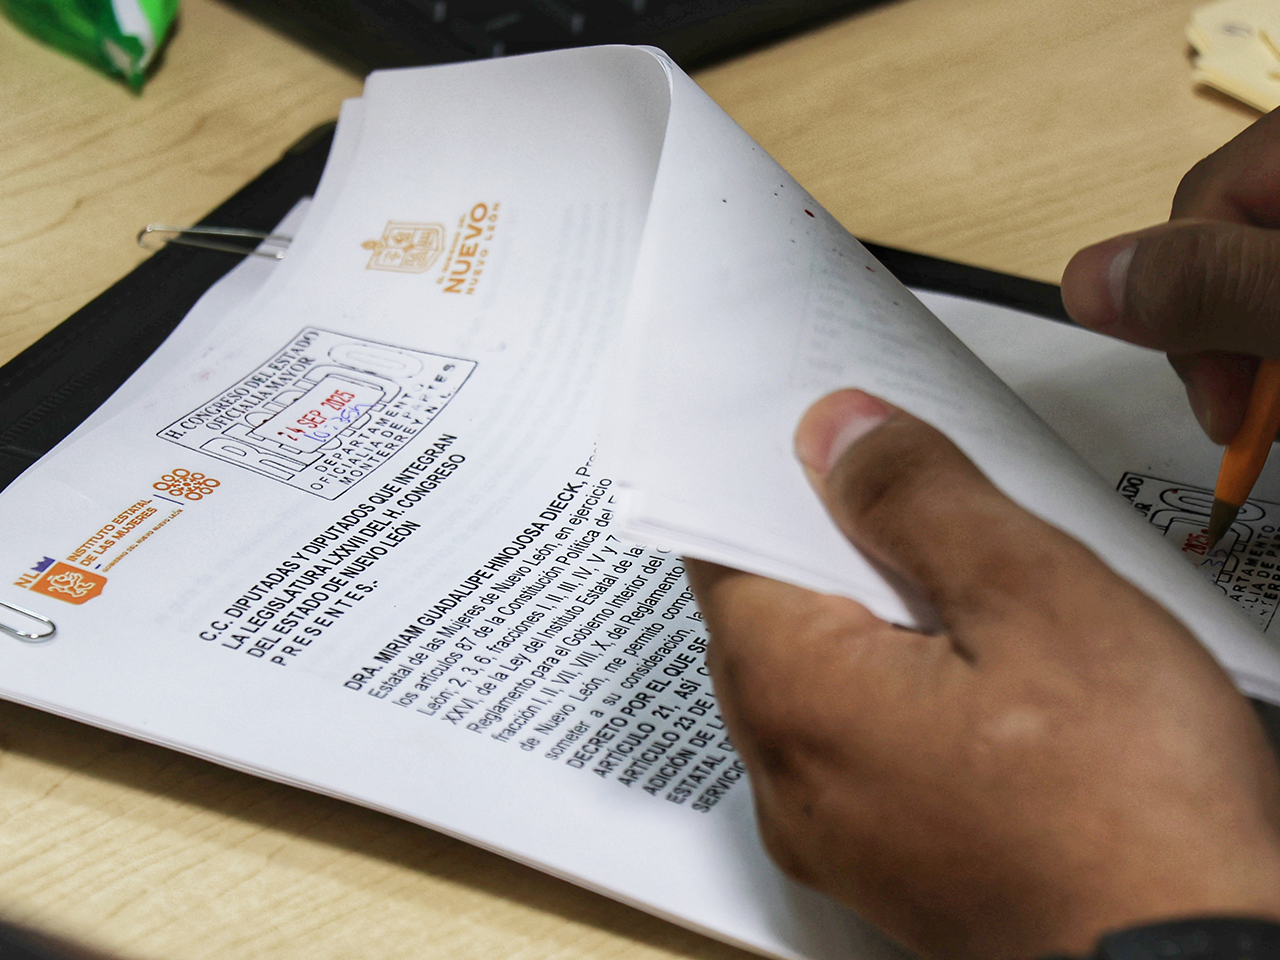 EL GOBIERNO DEL
NUEVO
NUEVO LEÓN
H. CONGRESO DEL ESTADO
OFICIALIA MAYOR
RECIBIDO
24 SEP 2025
DEPARTAMENT
OFICIALIA DE PARTES
MONTERREY, N. L.
NL
INSTITUTO ESTATAL
DE LAS MUJERES
GOBIERNO DEL NUEVO NUEVO LEÓN
C.C. DIPUTADAS Y DIPUTADOS QUE INTEGRAN
LA LEGISLATURA LXXVII DEL H. CONGRESO
DEL ESTADO DE NUEVO LEÓN
P R E S E N T E S.-
DRA. MIRIAM GUADALUPE HINOJOSA DIECK,
Estatal de las Mujeres de Nuevo León, en ejercicio
los artículos 87 de la Constitución Política del
León; 2, 3, 6, fracciones I, II, III, IV, V y 7,
XXVI, de la Ley del Instituto Estatal de las
Reglamento para el Gobierno Interior del
fracción I, II, VII, VIII, X, del Reglamento
de Nuevo León, me permito
someter a su consideración, la
DECRETO POR EL QUE SE
ARTÍCULO 21, ASÍ
ARTÍCULO 23 DE
ADICIÓN DE LA
ESTATAL
SERVICIO
2025